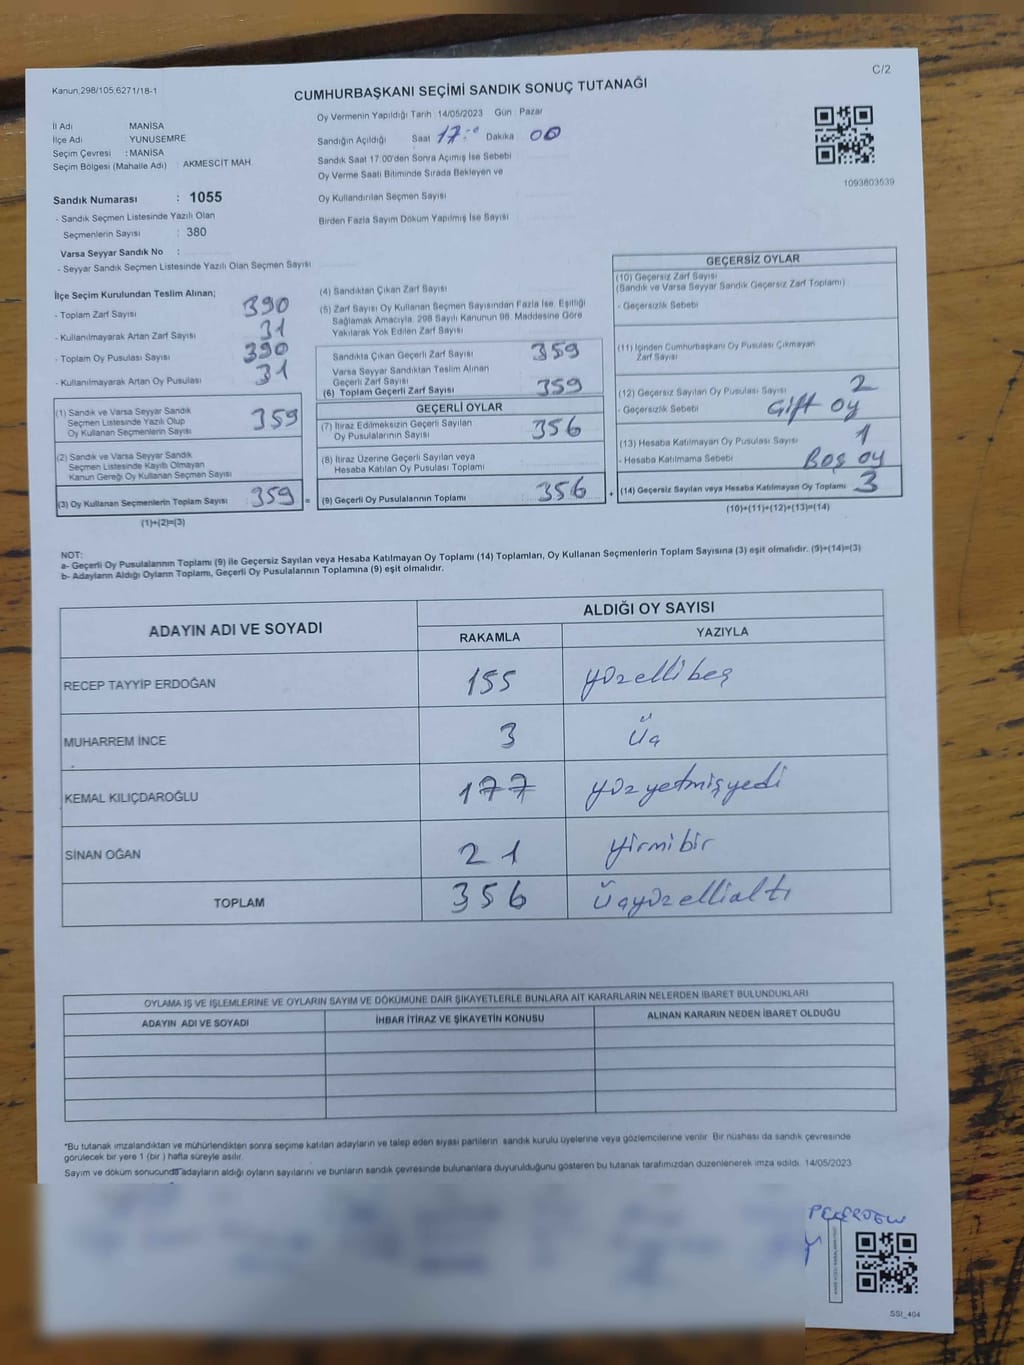 C/2
Kanun.298/105,6271/18-1
CUMHURBAŞKANI SEÇİMİ SANDIK SONUÇ TUTANAĞI
Oy Vermenin Yapıldığı Tarih 14/05/2023 Gün : Pazar
İl Adı MANİSA
İlçe Adı YUNUSEMRE
Seçim Çevresi : MANİSA
Seçim Bölgesi (Mahalle Adı) : AKMESCİT MAH
Sandığın Açıldığı Saat 17:00 Dakika 00
Sandık Saat 17.00'den Sonra Açımış İse Sebebi
Oy Verme Saati Bitiminde Sırada Bekleyen ve
Oy Kullandırılan Seçmen Sayısı
Birden Fazla Sayım Döküm Yapılmış İse Sayısı
1093803539
Sandık Numarası : 1055
- Sandık Seçmen Listesinde Yazılı Olan
Seçmenlerin Sayısı : 380
Varsa Seyyar Sandık No :
- Seyyar Sandık Seçmen Listesinde Yazılı Olan Seçmen Sayısı
İlçe Seçim Kurulundan Teslim Alınan;
- Toplam Zarf Sayısı 390
- Kullanılmayarak Artan Zarf Sayısı 31
- Toplam Oy Pusulası Sayısı 390
- Kullanılmayarak Artan Oy Pusulası 31
(1) Sandık ve Varsa Seyyar Sandık
Seçmen Listesinde Yazılı Olup
Oy Kullanan Seçmenlerin Sayısı 359
(2) Sandık ve Varsa Seyyar Sandık
Seçmen Listesinde Kayıtlı Olmayan
Kanun Gereği Oy Kullanan Seçmen Sayısı
(3) Oy Kullanan Seçmenlerin Toplam Sayısı 359 =
(1)+(2)=(3)
(4) Sandıktan Çıkan Zarf Sayısı
(5) Zarf Sayısı Oy Kullanan Seçmen Sayısından Fazla İse, Eşitliği
Sağlamak Amacıyla, 298 Sayılı Kanunun 98. Maddesine Göre
Yakılarak Yok Edilen Zarf Sayısı
Sandıkta Çıkan Geçerli Zarf Sayısı 359
Varsa Seyyar Sandıktan Teslim Alınan
Geçerli Zarf Sayısı
(6) Toplam Geçerli Zarf Sayısı 359
GEÇERLİ OYLAR
(7) İtiraz Edilmeksizin Geçerli Sayılan
Oy Pusulalarının Sayısı 356
(8) İtiraz Üzerine Geçerli Sayılan veya
Hesaba Katılan Oy Pusulası Toplamı
(9) Geçerli Oy Pusulalarının Toplamı 356 +
GEÇERSİZ OYLAR
(10) Geçersiz Zarf Sayısı
(Sandık ve Varsa Seyyar Sandık Geçersiz Zarf Toplamı)
- Geçersizlik Sebebi
(11) İçinden Cumhurbaşkanı Oy Pusulası Çıkmayan
Zarf Sayısı
(12) Geçersiz Sayılan Oy Pusulası Sayısı 2
- Geçersizlik Sebebi Çift oy
(13) Hesaba Katılmayan Oy Pusulası Sayısı 1
- Hesaba Katılmama Sebebi Boş oy
(14) Geçersiz Sayılan veya Hesaba Katılmayan Oy Toplamı 3
(10)+(11)+(12)+(13)=(14)
NOT:
a- Geçerli Oy Pusulalarının Toplamı (9) ile Geçersiz Sayılan veya Hesaba Katılmayan Oy Toplamı (14) Toplamları, Oy Kullanan Seçmenlerin Toplam Sayısına (3) eşit olmalıdır. (9)+(14)=(3)
b- Adayların Aldığı Oyların Toplamı, Geçerli Oy Pusulalarının Toplamına (9) eşit olmalıdır.
ADAYIN ADI VE SOYADI
ALDIĞI OY SAYISI
RAKAMLA YAZIYLA
RECEP TAYYİP ERDOĞAN 155 yüzellibeş
MUHARREM İNCE 3 üç
KEMAL KILIÇDAROĞLU 177 yüzyetmişyedi
SİNAN OĞAN 21 yirmibir
TOPLAM 356 üçyüzellialtı
OYLAMA İŞ VE İŞLEMLERİNE VE OYLARIN SAYIM VE DÖKÜMÜNE DAİR ŞİKAYETLERLE BUNLARA AİT KARARLARIN NELERDEN İBARET BULUNDUKLARI
ADAYIN ADI VE SOYADI İHBAR İTİRAZ VE ŞİKAYETİN KONUSU ALINAN KARARIN NEDEN İBARET OLDUĞU
*Bu tutanak imzalandıktan ve mühürlendikten sonra seçime katılan adayların ve talep eden siyasi partilerin sandık kurulu üyelerine veya gözlemcilerine verilir. Bir nüshası da sandık çevresinde
görülecek bir yere 1 (bir ) hafta süreyle asılır.
Sayım ve döküm sonucunda adayların aldığı oyların sayılarını ve bunların sandık çevresinde bulunanlara duyurulduğunu gösteren bu tutanak tarafımızdan düzenlenerek imza edildi. 14/05/2023
SSI_404